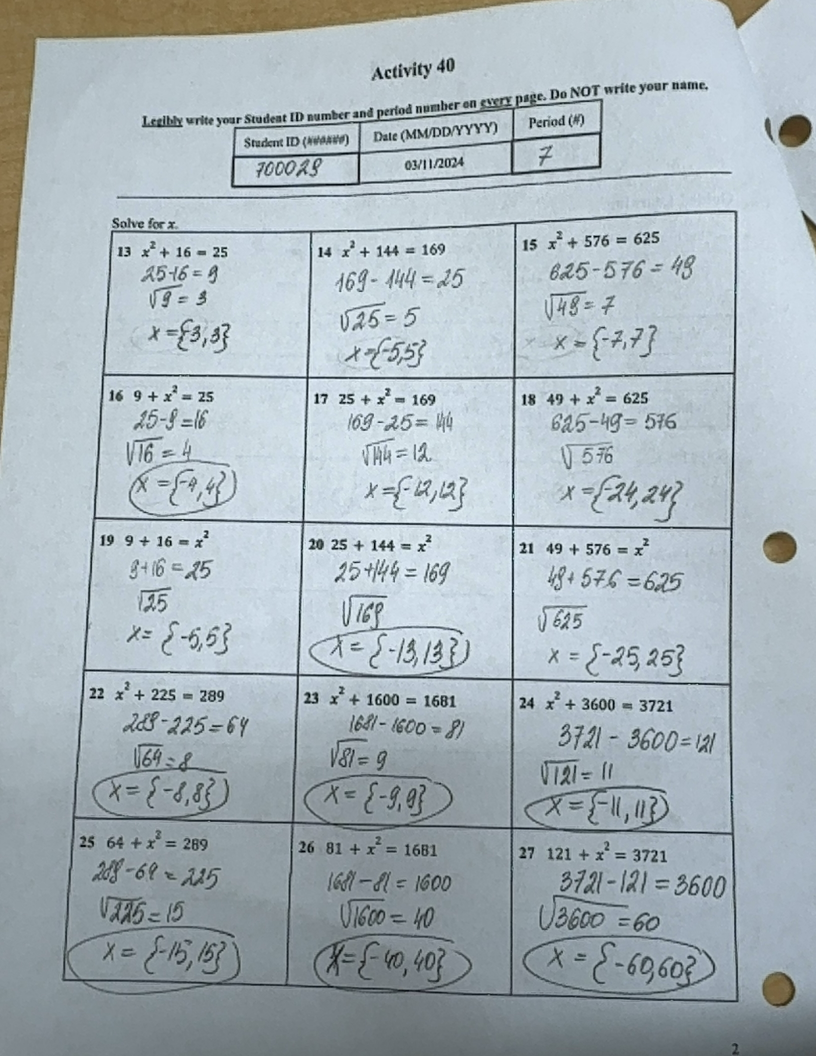 Activity 40
Legibly write your Student ID number and period number on every page. Do NOT write your name.
Student ID (######) Date (MM/DD/YYYY) Period (#)
700029 03/11/2024 7
Solve for x.
13 x² + 16 = 25
25-16 = 9
√9 = 3
x = {-3,3}
14 x² + 144 = 169
169 - 144 = 25
√25 = 5
x = {-5,5}
15 x² + 576 = 625
625 - 576 = 49
√49 = 7
x = {-7,7}
16 9 + x² = 25
25-9 = 16
√16 = 4
x = {-4,4}
17 25 + x² = 169
169 - 25 = 144
√144 = 12
x = {-12,12}
18 49 + x² = 625
625 - 49 = 576
√576
x = {-24,24}
19 9 + 16 = x²
9+16 = 25
√25
x = {-5,5}
20 25 + 144 = x²
25+144 = 169
√169
x = {-13,13}
21 49 + 576 = x²
49+576 = 625
√625
x = {-25,25}
22 x² + 225 = 289
289 - 225 = 64
√64 = 8
x = {-8,8}
23 x² + 1600 = 1681
1681 - 1600 = 81
√81 = 9
x = {-9,9}
24 x² + 3600 = 3721
3721 - 3600 = 121
√121 = 11
x = {-11,11}
25 64 + x² = 289
289 - 64 = 225
√225 = 15
x = {-15,15}
26 81 + x² = 1681
1681 - 81 = 1600
√1600 = 40
x = {-40,40}
27 121 + x² = 3721
3721 - 121 = 3600
√3600 = 60
x = {-60,60}
2